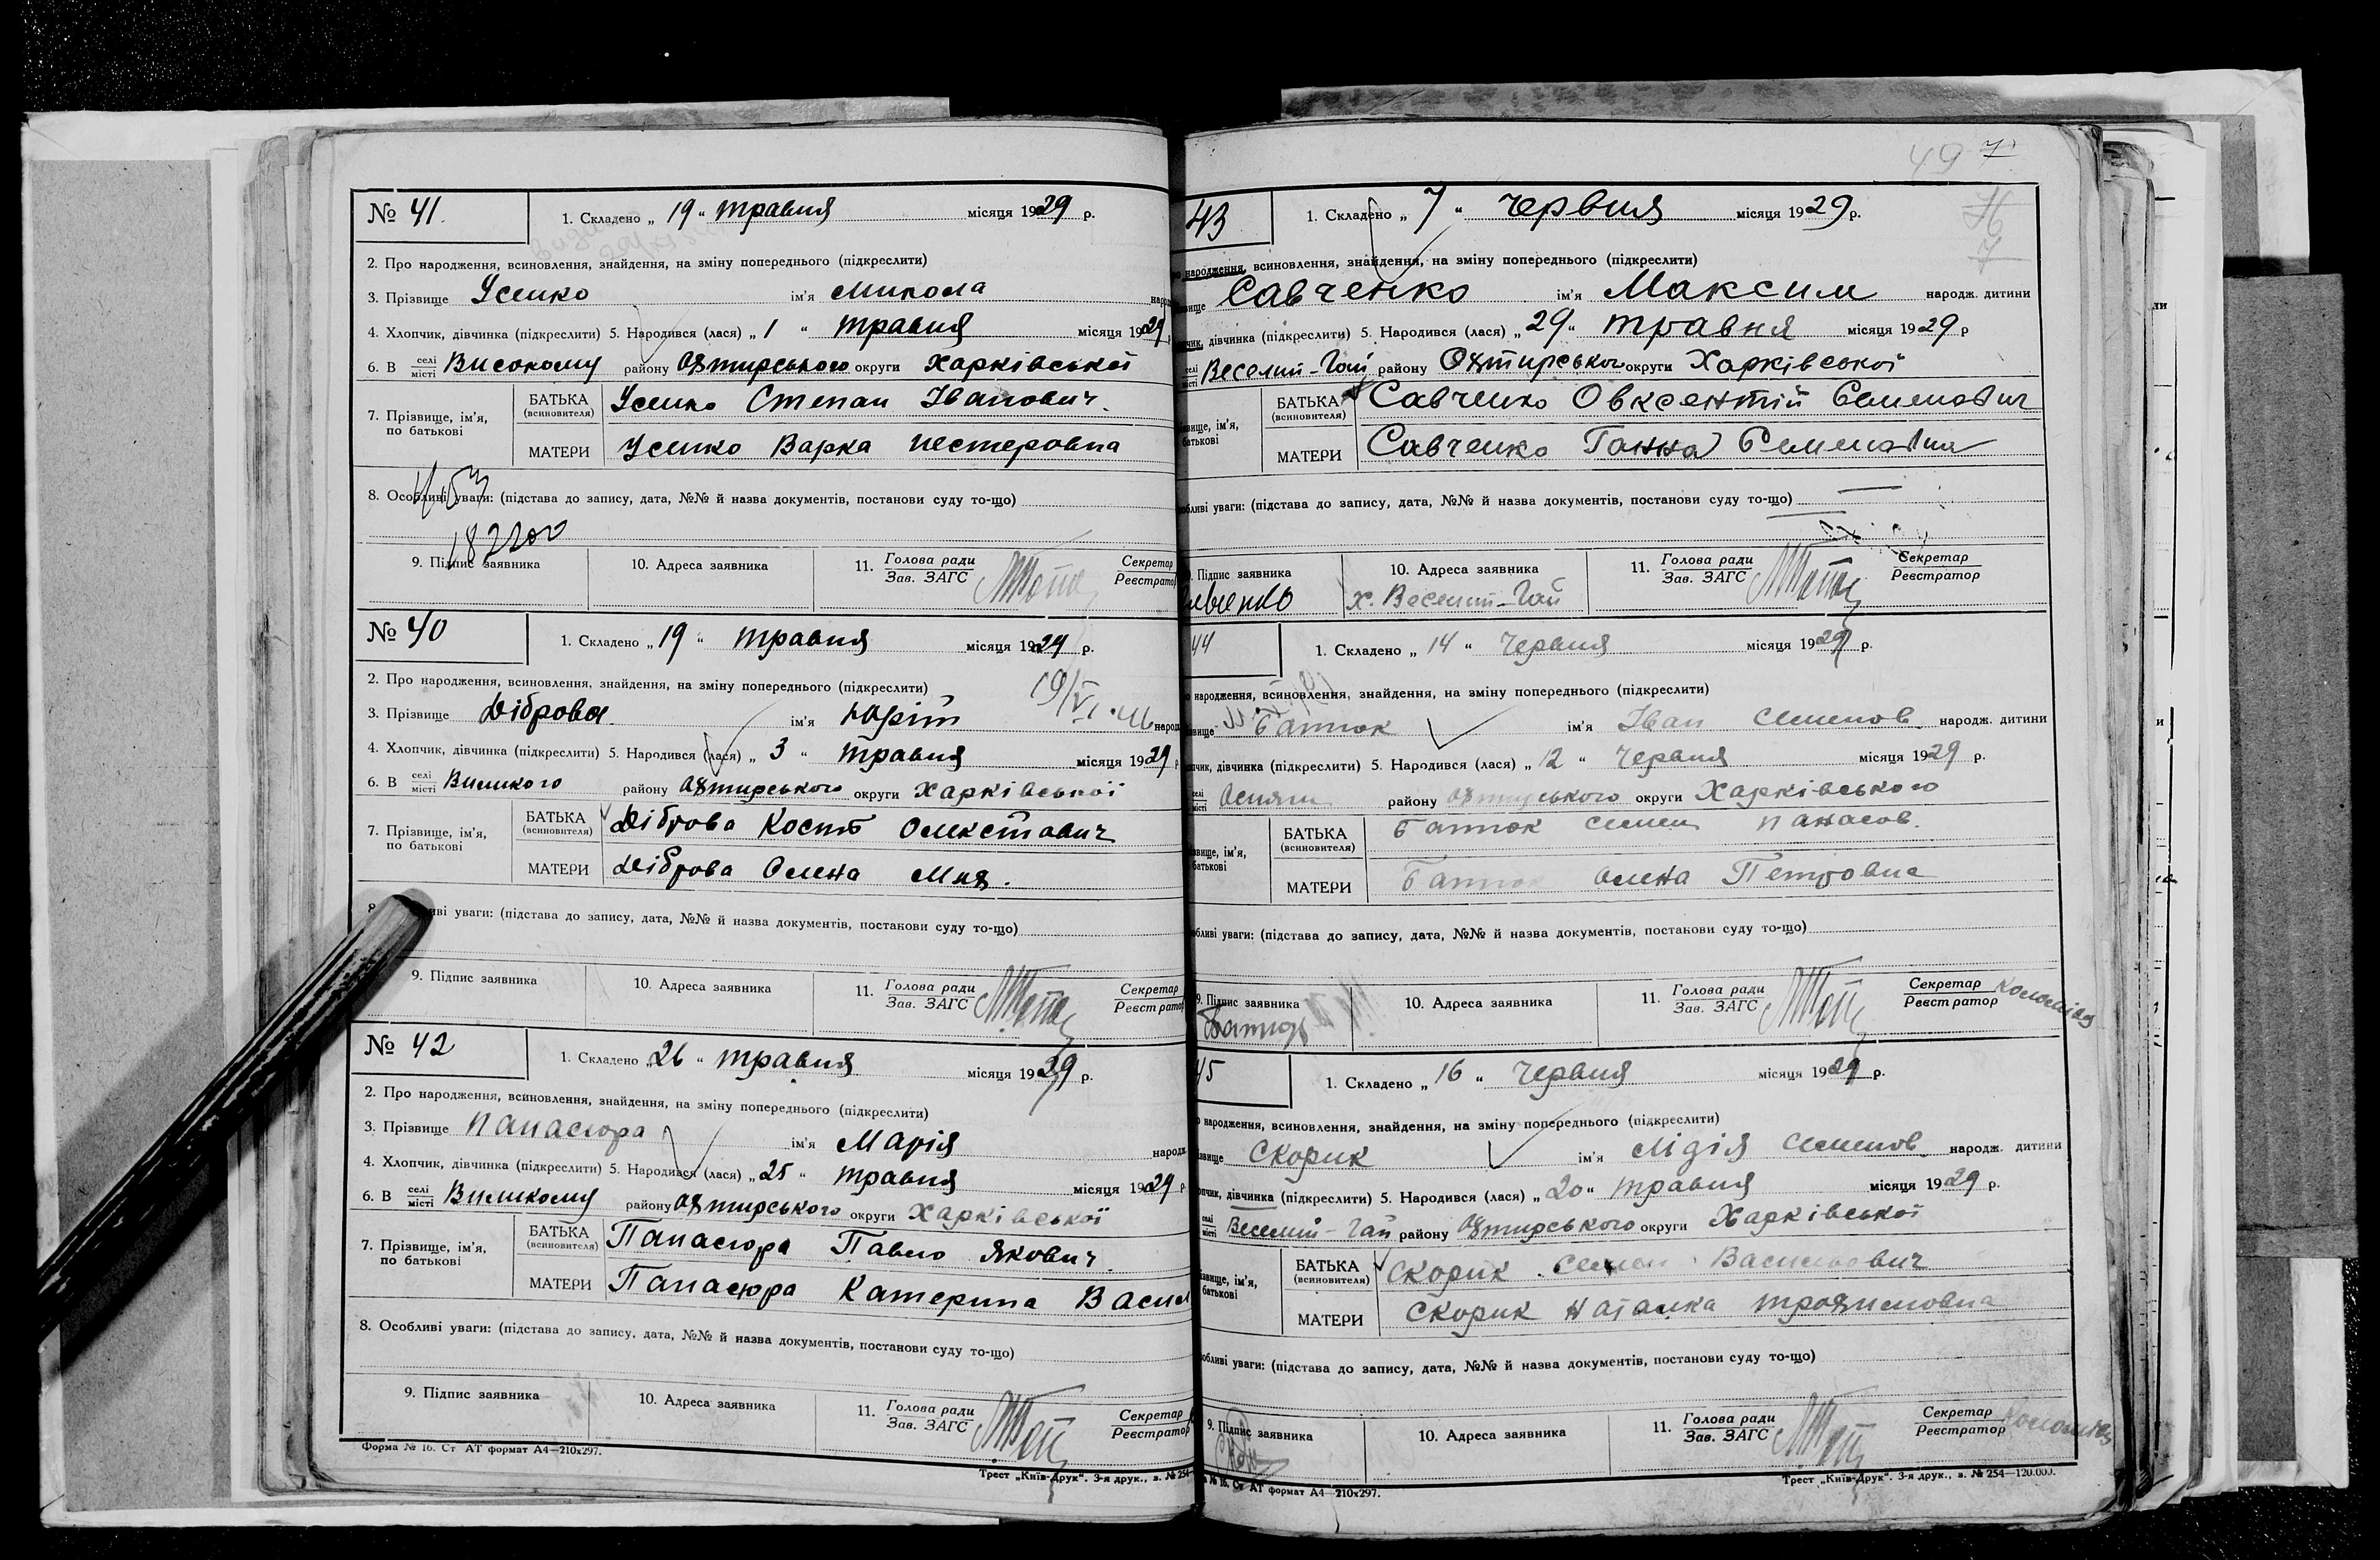 № 41.
1. Складено „ 19 “ травня місяця 1929 р.
2. Про народження, всиновлення, знайдення, на зміну попереднього (підкреслити)
3. Прізвище Усенко ім'я Микола народ
4. Хлопчик, дівчинка (підкреслити) 5. Народився (лася) „ 1 “ травня місяця 1929 р
6. В селі місті Високому району Охтирського округи Харківської
7. Прізвище, ім'я, по батькові
БАТЬКА (всиновителя) Усенко Степан Іванович.
МАТЕРИ Усенко Варка Нестеровна
8. Особливі уваги: (підстава до запису, дата, №№ й назва документів, постанови суду то-що)
9. Підпис заявника 10. Адреса заявника 11. Голова ради Зав. ЗАГС Секретар Реєстратор
№ 40
1. Складено „ 19 “ травня місяця 1929 р.
2. Про народження, всиновлення, знайдення, на зміну попереднього (підкреслити)
3. Прізвище Діброва ім'я народ
4. Хлопчик, дівчинка (підкреслити) 5. Народився (лася) „ 3 “ травня місяця 1929 р
6. В селі місті району Охтирського округи Харківської
7. Прізвище, ім'я, по батькові
БАТЬКА (всиновителя) Діброва Кость
МАТЕРИ Діброва Олена
иві уваги: (підстава до запису, дата, №№ й назва документів, постанови суду то-що)
9. Підпис заявника 10. Адреса заявника 11. Голова ради Зав. ЗАГС Секретар Реєстратор
№ 42
1. Складено „ 26 “ травня місяця 1929 р.
2. Про народження, всиновлення, знайдення, на зміну попереднього (підкреслити)
3. Прізвище Панасюра ім'я Марія народж
4. Хлопчик, дівчинка (підкреслити) 5. Народився (лася) „ 25 “ травня місяця 1929 р
6. В селі місті району Охтирського округи Харківської
7. Прізвище, ім'я, по батькові
БАТЬКА (всиновителя) Панасюра Павло Якович.
МАТЕРИ Панасюра Катерина Васил
8. Особливі уваги: (підстава до запису, дата, №№ й назва документів, постанови суду то-що)
9. Підпис заявника 10. Адреса заявника 11. Голова ради Зав. ЗАГС Секретар Реєстратор
Форма № 16. Ст АТ формат А4—210х297.
Трест „Київ-Друк“. 3-я друк., з. № 254
49 7
43
1. Складено „ 7 “ червня місяця 1929 р.
о народження, всиновлення, знайдення, на зміну попереднього (підкреслити)
вище Савченко ім'я Максим народж. дитини
чик, дівчинка (підкреслити) 5. Народився (лася) „ 29 “ травня місяця 1929 р
селі місті Веселий-Гай району Охтирського округи Харківської
звище, ім'я, батькові
БАТЬКА (всиновителя) Савченко Овксентій Семенович
МАТЕРИ Савченко Ганна Семеновна
обливі уваги: (підстава до запису, дата, №№ й назва документів, постанови суду то-що)
9. Підпис заявника 10. Адреса заявника 11. Голова ради Зав. ЗАГС Секретар Реєстратор
авченко х. Веселий-Гай
44
1. Складено „ 14 “ червня місяця 1929 р.
о народження, всиновлення, знайдення, на зміну попереднього (підкреслити)
звище ім'я Іван Семенов народж. дитини
пчик, дівчинка (підкреслити) 5. Народився (лася) „ 12 “ червня місяця 1929 р.
селі місті району Охтирського округи Харківського
звище, ім'я, батькові
БАТЬКА (всиновителя) Семен Панасов.
МАТЕРИ Олена Петровна
обливі уваги: (підстава до запису, дата, №№ й назва документів, постанови суду то-що)
9. Підпис заявника 10. Адреса заявника 11. Голова ради Зав. ЗАГС Секретар Реєстратор
45
1. Складено „ 16 “ червня місяця 1929 р.
о народження, всиновлення, знайдення, на зміну попереднього (підкреслити)
звище Скорик ім'я Лідія Семенов народж. дитини
пчик, дівчинка (підкреслити) 5. Народився (лася) „ 20 “ травня місяця 1929 р.
селі місті Веселий-Гай району Охтирського округи Харківської
звище, ім'я, батькові
БАТЬКА (всиновителя) Скорик Семен Васильович
МАТЕРИ Скорик Наталка Трохимовна
обливі уваги: (підстава до запису, дата, №№ й назва документів, постанови суду то-що)
9. Підпис заявника 10. Адреса заявника 11. Голова ради Зав. ЗАГС Секретар Реєстратор
а № 16. Ст АТ формат А4—210х297.
Трест „Київ-Друк“. 3-я друк., з. № 254—120.000.